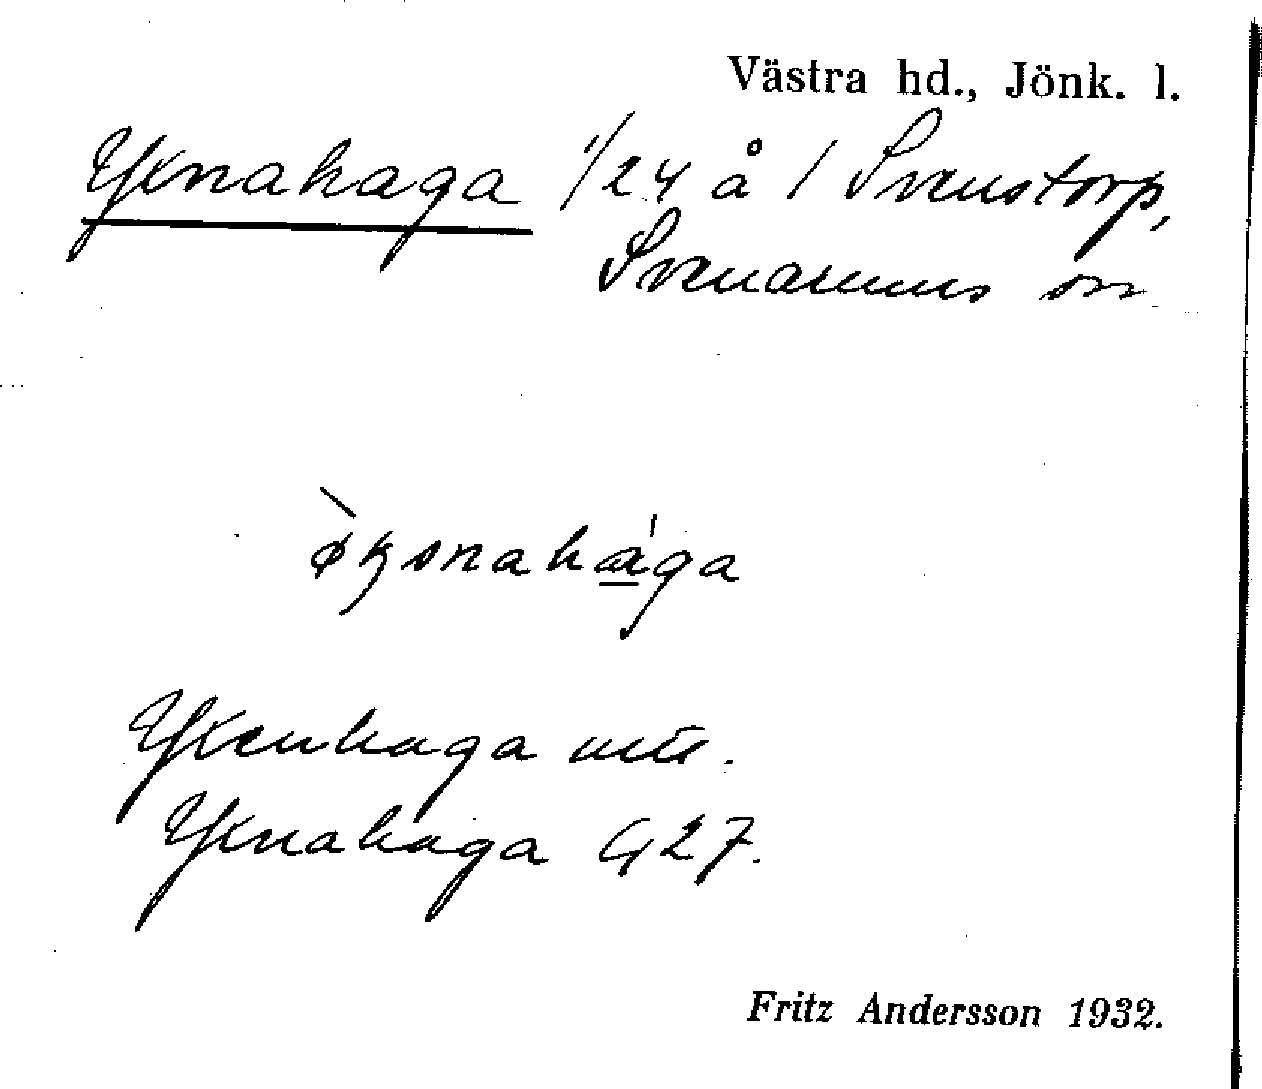 Västra hd., Jönk. l.
Yxnahaga 1/24 å 1 Svenstorp,
Svenarums sn
øksnahaga
Yxenhaga
Yxnahaga G 27.
Fritz Andersson 1932.